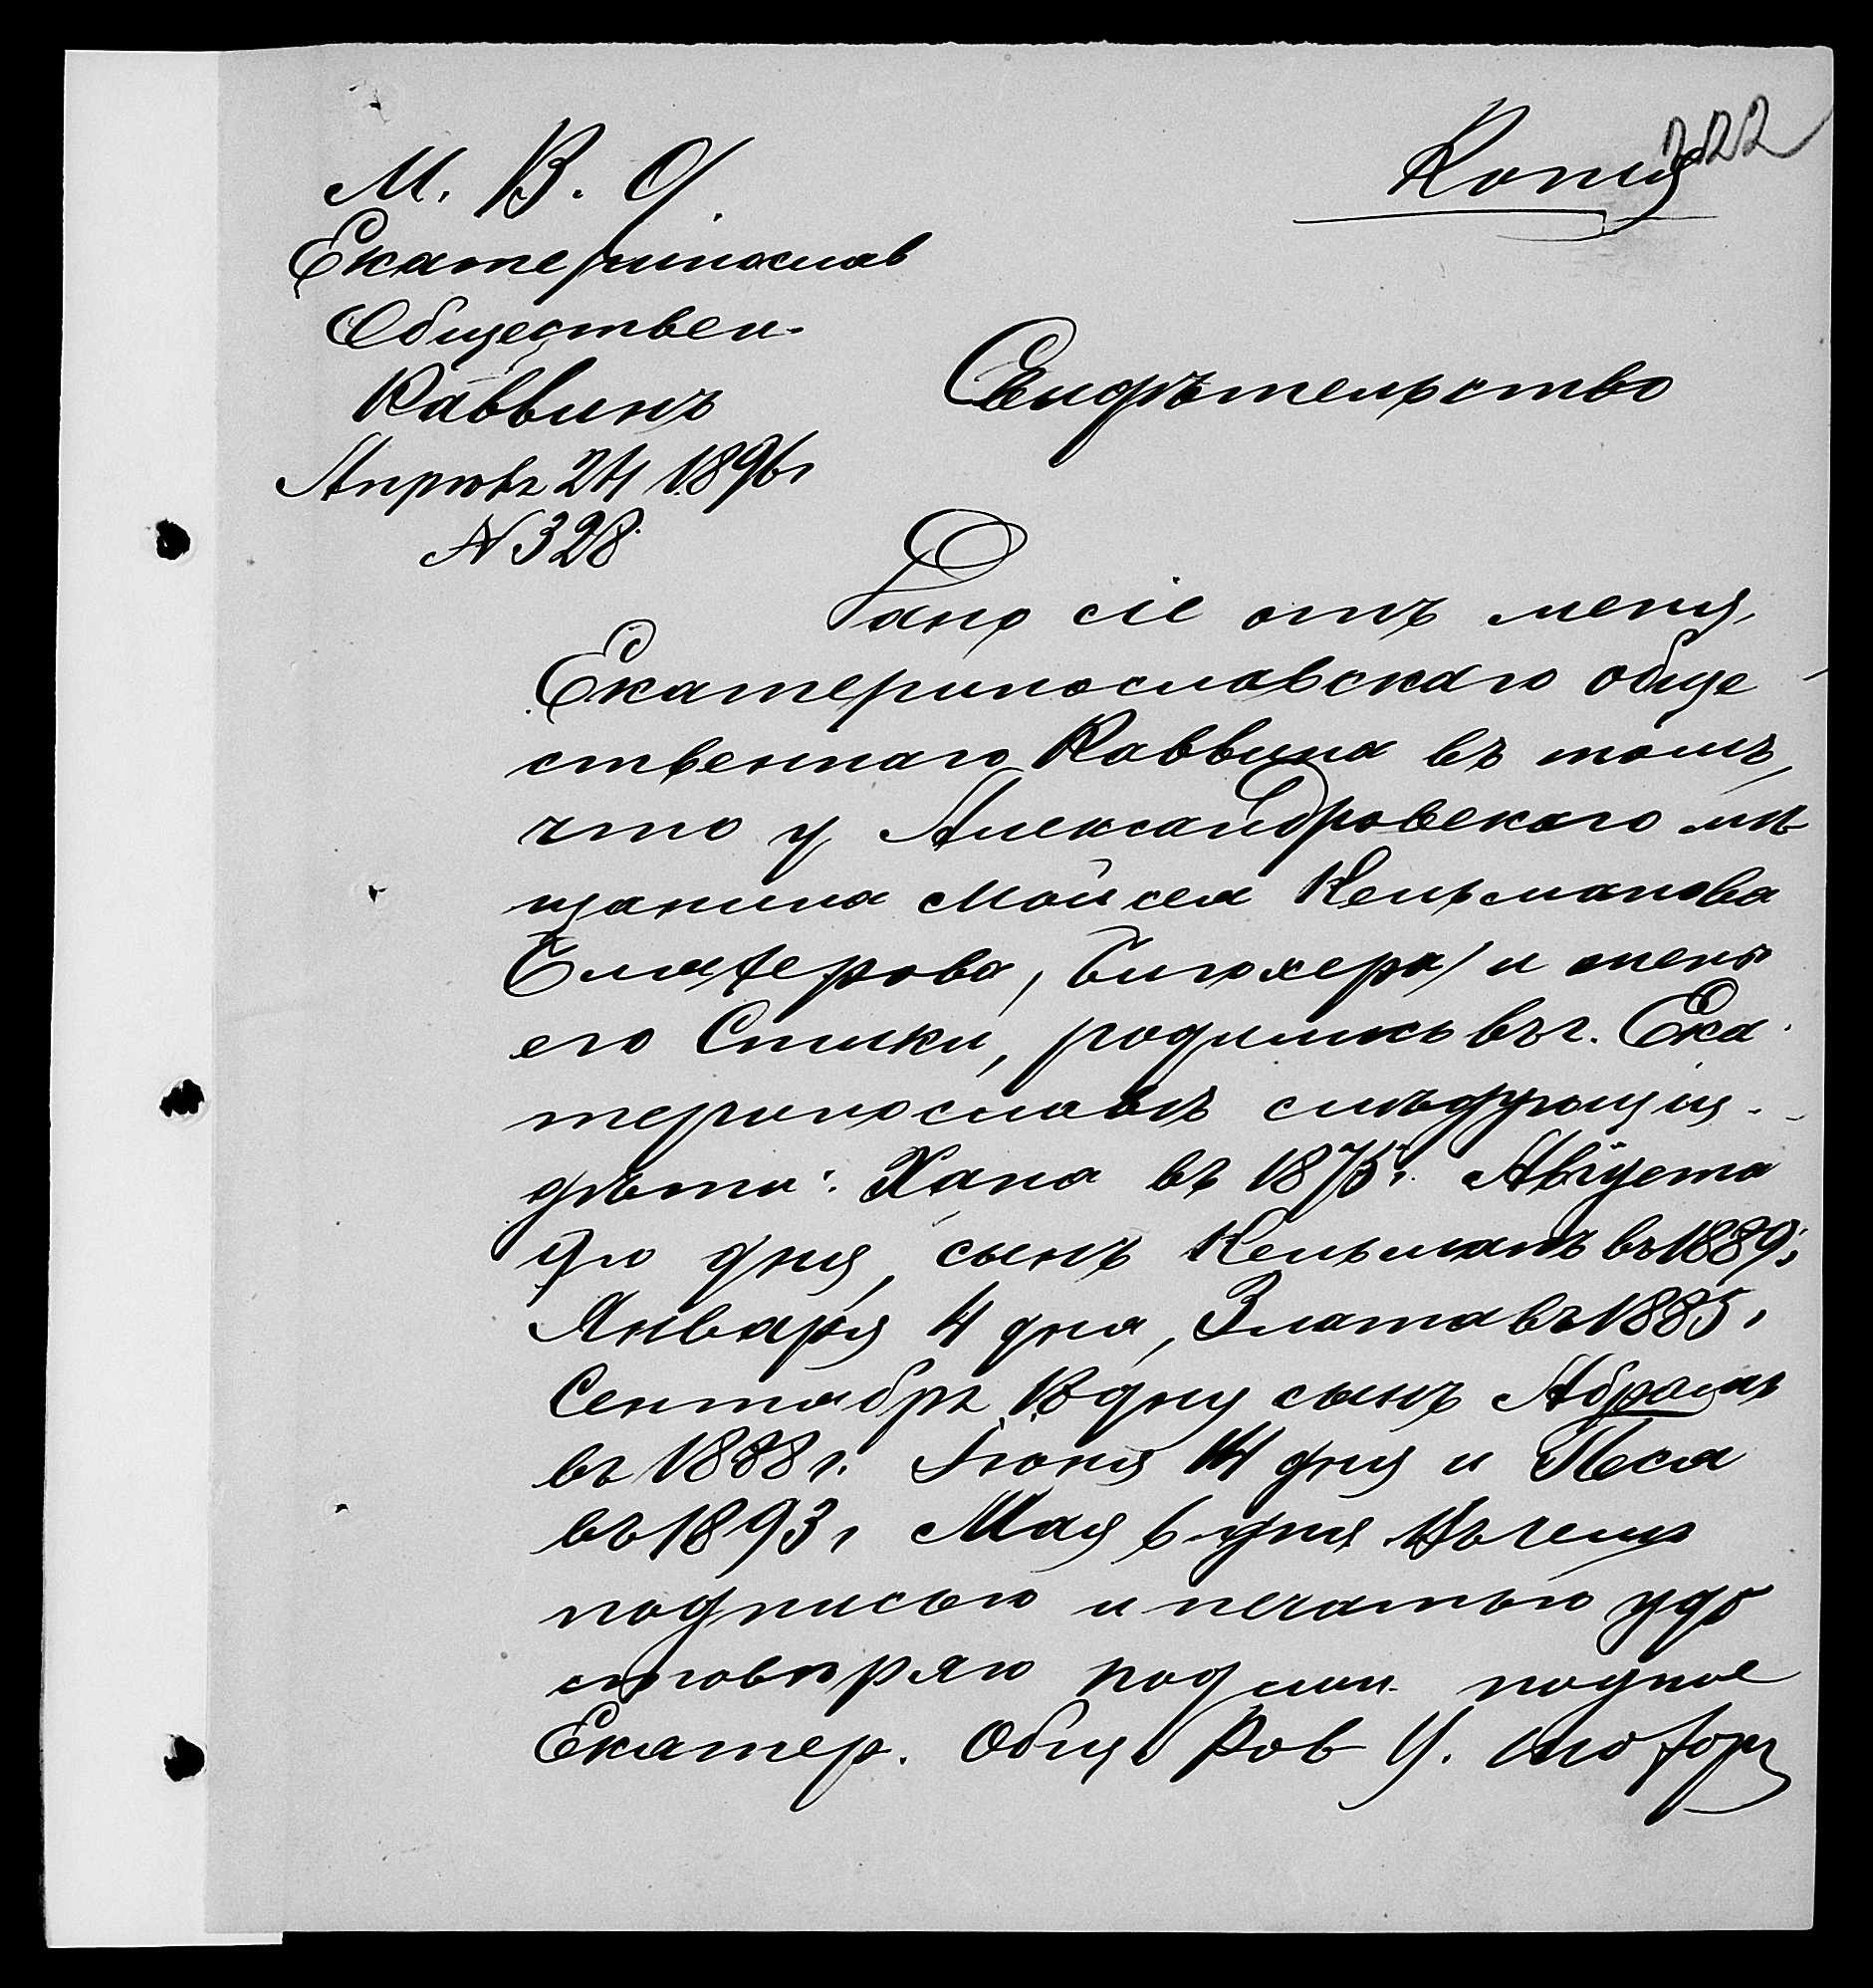 Копія
322
М. В. Д.
Екатеринослав
Обществен.
Раввинъ
Апрѣль 24 1896 г
№ 328
Свидѣтельство
Дано сіе отъ меня,
Екатеринославскаго обще
ственнаго Раввина въ томъ,
что у Александровскаго мѣ
щанина Мойсея Кельманова
его родились въ г. Ека
теринославѣ слѣдующія
дѣти: Хана въ 1875 г. Августа
дня, сынъ Кельманъ въ 1889 г.
Января 4 дня, Злата въ 1885 г
Сентября 18 дня сынъ Абрамъ
въ 1888 г. Іюня 14 дня и Песя
въ 1893 г Мая 6 дня въ чемъ
подписью и печатью удо
стовѣряю подлин. подпис
Екатер. Общ Рав